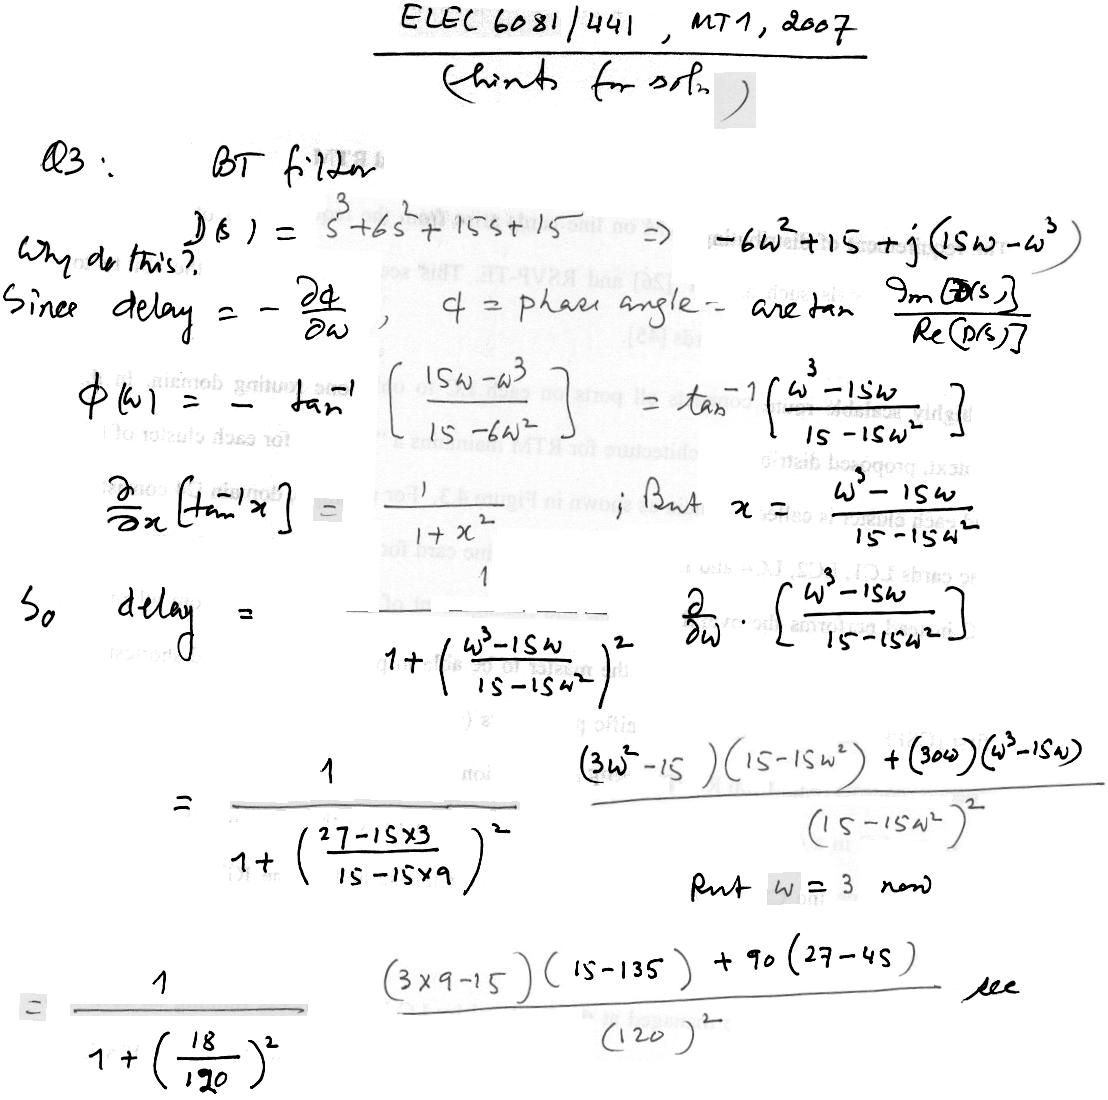 ELEC 6081/441 , MT1, 2007
(hints for soln)
Q3 : BT filter
D(s) = s³+6s²+15s+15 => -6ω²+15 + j(15ω-ω³)
Why do this?
Since delay = - ∂ϕ/∂ω , ϕ = phase angle - arc tan Im[D(s)]/Re[D(s)]
ϕ(ω) = - tan⁻¹ [ (15ω-ω³)/(15-6ω²) ] = tan⁻¹ [ (ω³-15ω)/(15-15ω²) ]
∂/∂x [tan⁻¹x] = 1/(1+x²) ; But x = (ω³-15ω)/(15-15ω²)
So delay = 1/(1+((ω³-15ω)/(15-15ω²))²) ∂/∂ω · [ (ω³-15ω)/(15-15ω²) ]
= 1/(1+((27-15x3)/(15-15x9))²) ((3ω²-15)(15-15ω²) + (30ω)(ω³-15ω))/(15-15ω²)²
Put ω = 3 now
= 1/(1+(18/120)²) ((3x9-15)(15-135) + 90(27-45))/(120)² sec